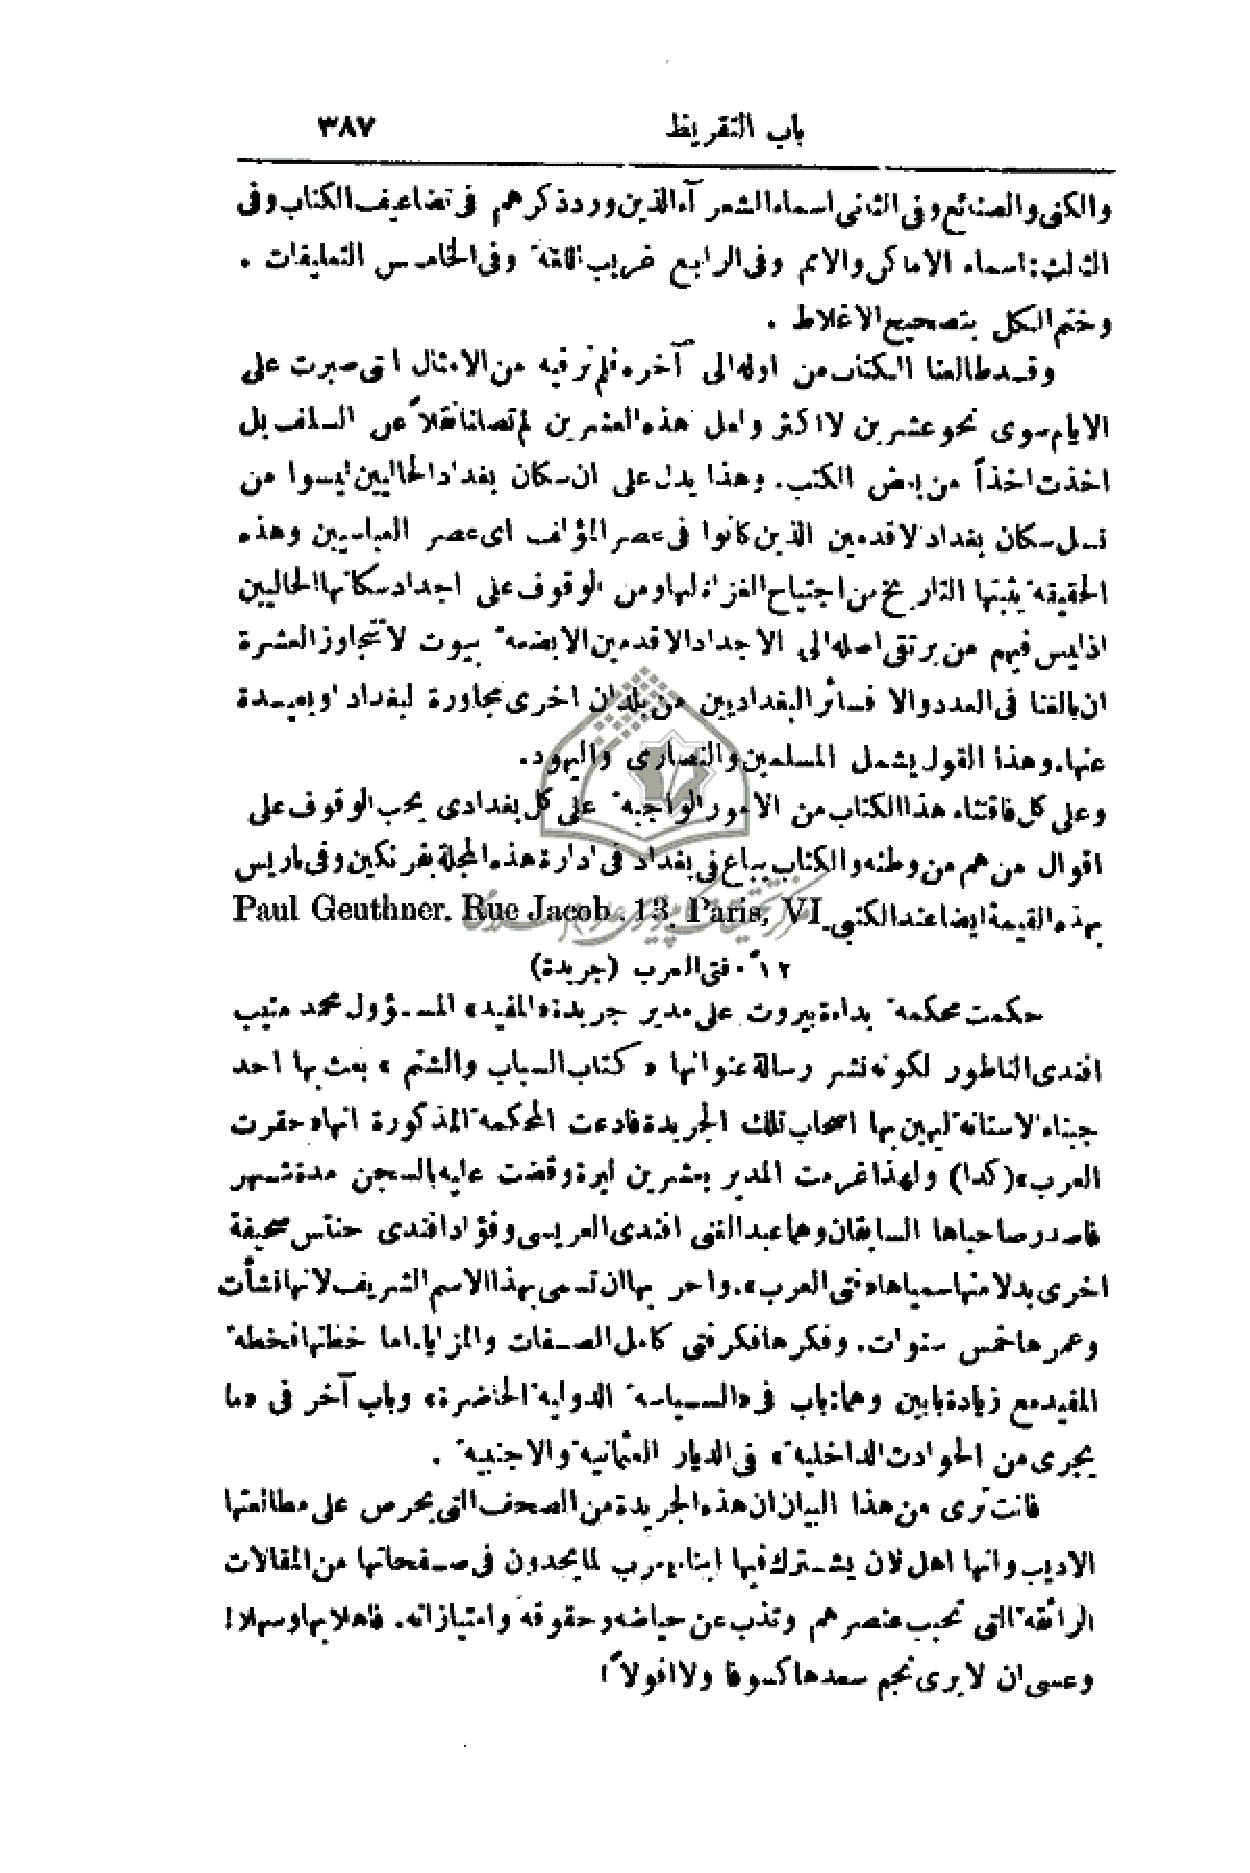 باب التقريظ ٣٨٧
والكنى والصنائع وفى الثانى اسماء الشعرآء الذين ورد ذكرهم فى تضاعيف الكتاب وفى
الثالث: اسماء الاماكن والامم وفى الرابع غريب اللغة وفى الخامس التعليقات .
وختم الكل بتصحيح الاغلاط .
وقد طالعنا الكتاب من اوله الى آخره فلم نر فيه من الامثال التى صبرت على
الايام سوى نحو عشرين لا اكثر ولعل هذه العشرين لم تصلنا نقلاً عن السلف بل
اخذت اخذاً من بعض الكتب. وهذا يدل على ان سكان بغداد الحاليين ليسوا من
نسل سكان بغداد الاقدمين الذين كانوا فى عصر المؤلف اى عصر العباسيين وهذه
الحقيقة يثبتها التاريخ من اجتياح الغزاة لها ومن الوقوف على اجداد سكانها الحاليين
اذ ليس فيهم من يرتقى اصله الى الاجداد الاقدمين الا بضعة بيوت لا تتجاوز العشرة
ان بالغنا فى العدد والا فسائر البغداديين من بلدان اخرى مجاورة لبغداد او بعيدة
عنها. وهذا القول يشمل المسلمين والنصارى واليهود.
وعلى كل فاقتناء هذا الكتاب من الامور الواجبة على كل بغدادى يحب الوقوف على
اقوال من هم من وطنه والكتاب يباع فى بغداد فى ادارة هذه المجلة بفرنكين وفى باريس
بهذه القيمة ايضا عند الكتبى Paul Geuthner. Rue Jacob. 13. Paris, VI
١٢ً ٠ فتى العرب (جريدة)
حكمت محكمة بداءة بيروت على مدير جريدة «المفيد» المسؤول محمد منيب
افندى الناطور لكونه نشر رسالة عنوانها «كتاب السباب والشتم» بعث بها احد
جبناء الاستانة ليهين بها اصحاب تلك الجريدة فادعت المحكمة المذكورة انها «حقرت
العرب» (كذا) ولهذا غرمت المدير بعشرين ليرة وقضت عليه بالسجن مدة شهر
فاصدر صاحباها السابقان وهما عبد الغنى افندى العريسى وفؤاد افندى حنتس صحيفة
اخرى بدلا منها سمياها «فتى العرب». واحر بها ان تسمى بهذا الاسم الشريف لانها نشأت
وعمرها خمس سنوات. وفكرها فكر فتى كامل الصفات والمزايا. اما خطتها فخطة
المفيد مع زيادة بابين وهما: باب فى «السياسة الدولية الحاضرة» وباب آخر فى «ما
يجرى من الحوادث الداخلية» فى الديار العثمانية والاجنبية .
فانت ترى من هذا البيان ان هذه الجريدة من الصحف التى يحرص على مطالعتها
الاديب وانها اهل لان يشترك فيها ابناء يعرب لما يجدون فى صفحاتها من المقالات
الرائقة التى تحبب عنصرهم وتذب عن حياضه وحقوقه وامتيازاته. فاهلا بها وسهلا!
وعسى ان لا يرى نجم سعدها كسوفا ولا افولاً!